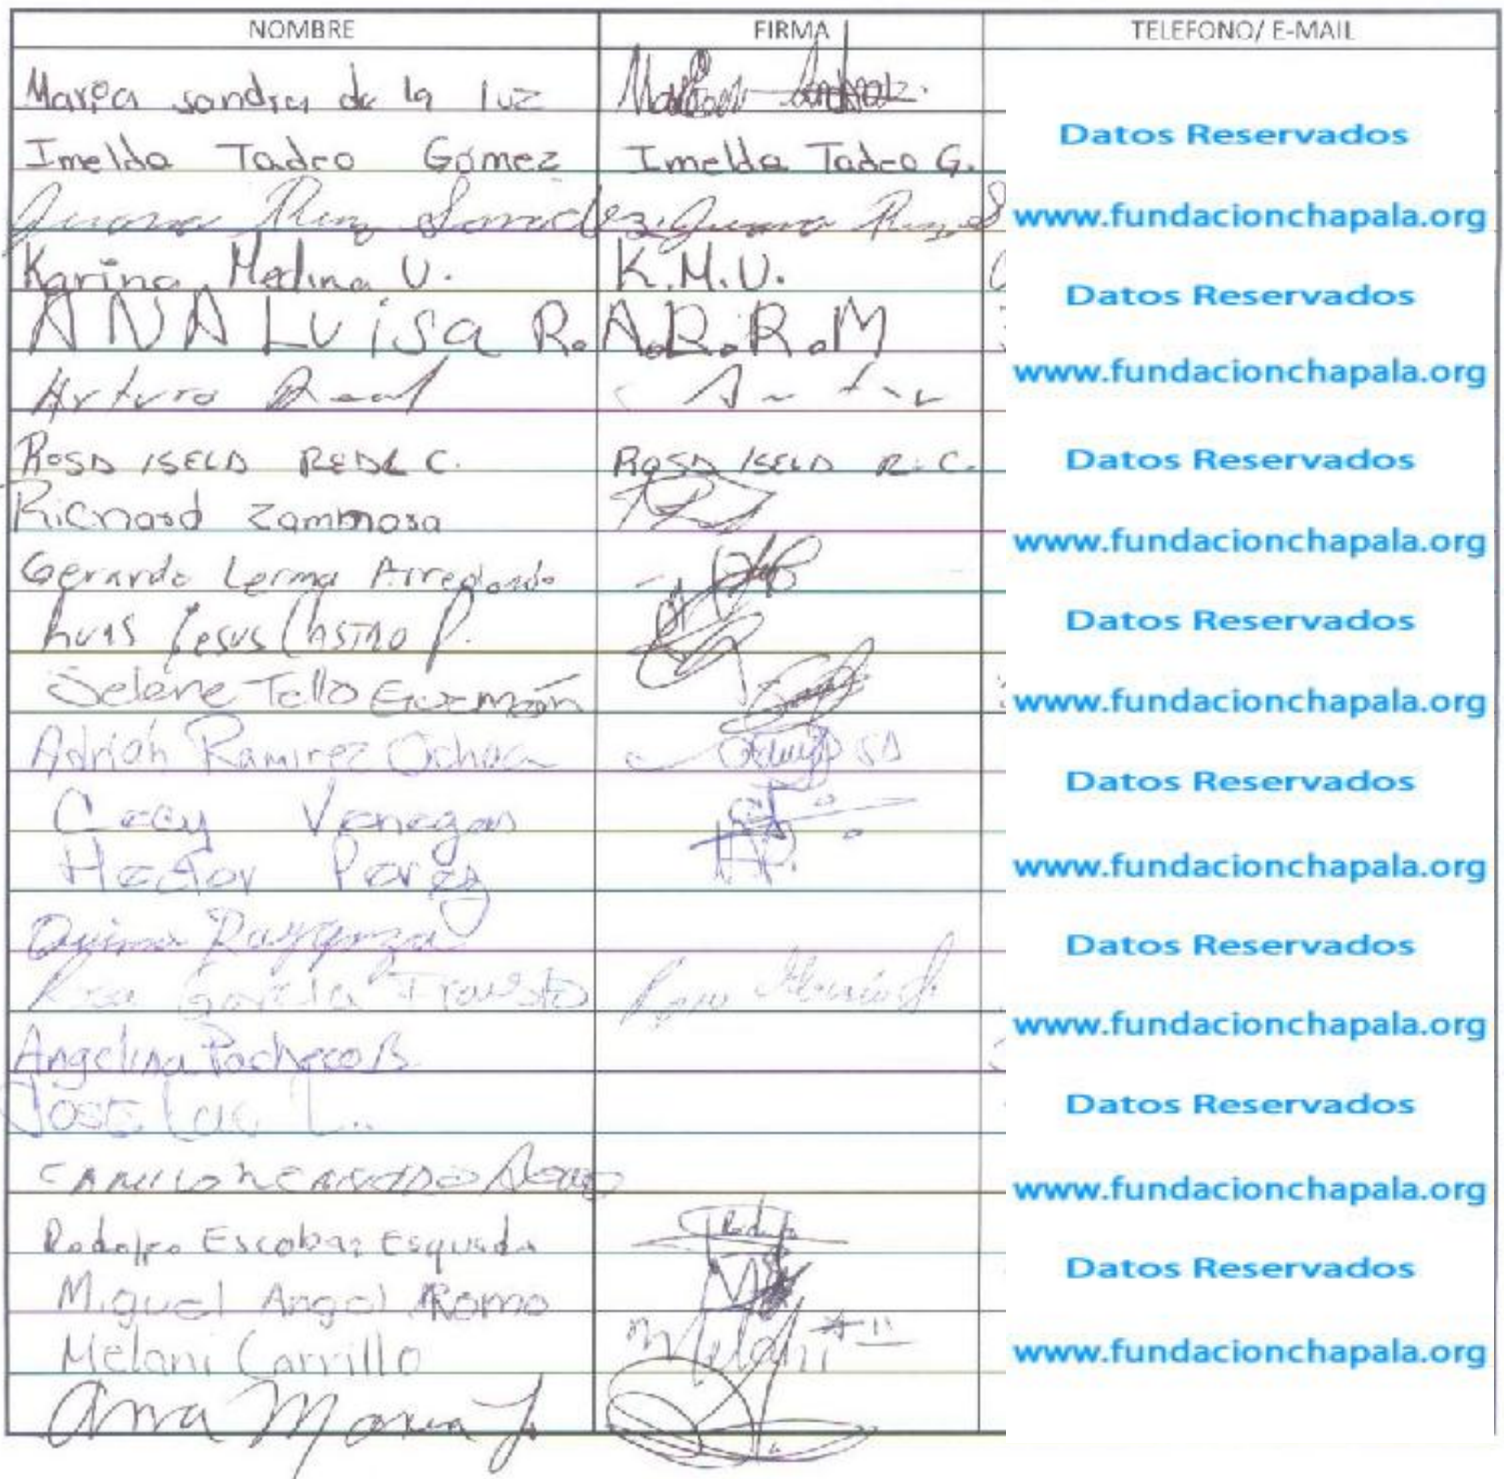 NOMBRE FIRMA TELEFONO/ E-MAIL
María sandra de la luz
Imelda Tadeo Gómez Imelda Tadeo G.
Datos Reservados
Juana Juana
www.fundacionchapala.org
Karina Medina V. K.M.V.
Datos Reservados
ANA Luisa R. A.R.R.M
Arturo Real
www.fundacionchapala.org
ROSA ISELA REAL C. ROSA ISELA R.C.
Datos Reservados
Richard Zammora
www.fundacionchapala.org
Gerardo Lerma Arredondo
Luis Jesus Castro P.
Datos Reservados
Selene Tello Guzmán
www.fundacionchapala.org
Adrián Ramirez Ochoa
Datos Reservados
Cecy Venegas
Hector Perez
www.fundacionchapala.org
Datos Reservados
Rosa García Frausto
www.fundacionchapala.org
Angelina Pacheco B.
José L.
Datos Reservados
CAMILO
www.fundacionchapala.org
Rodolfo Escobar Esqueda Rodolfo
Datos Reservados
Miguel Angel Romo
Melani Carrillo Melani
www.fundacionchapala.org
Ana Maria J.